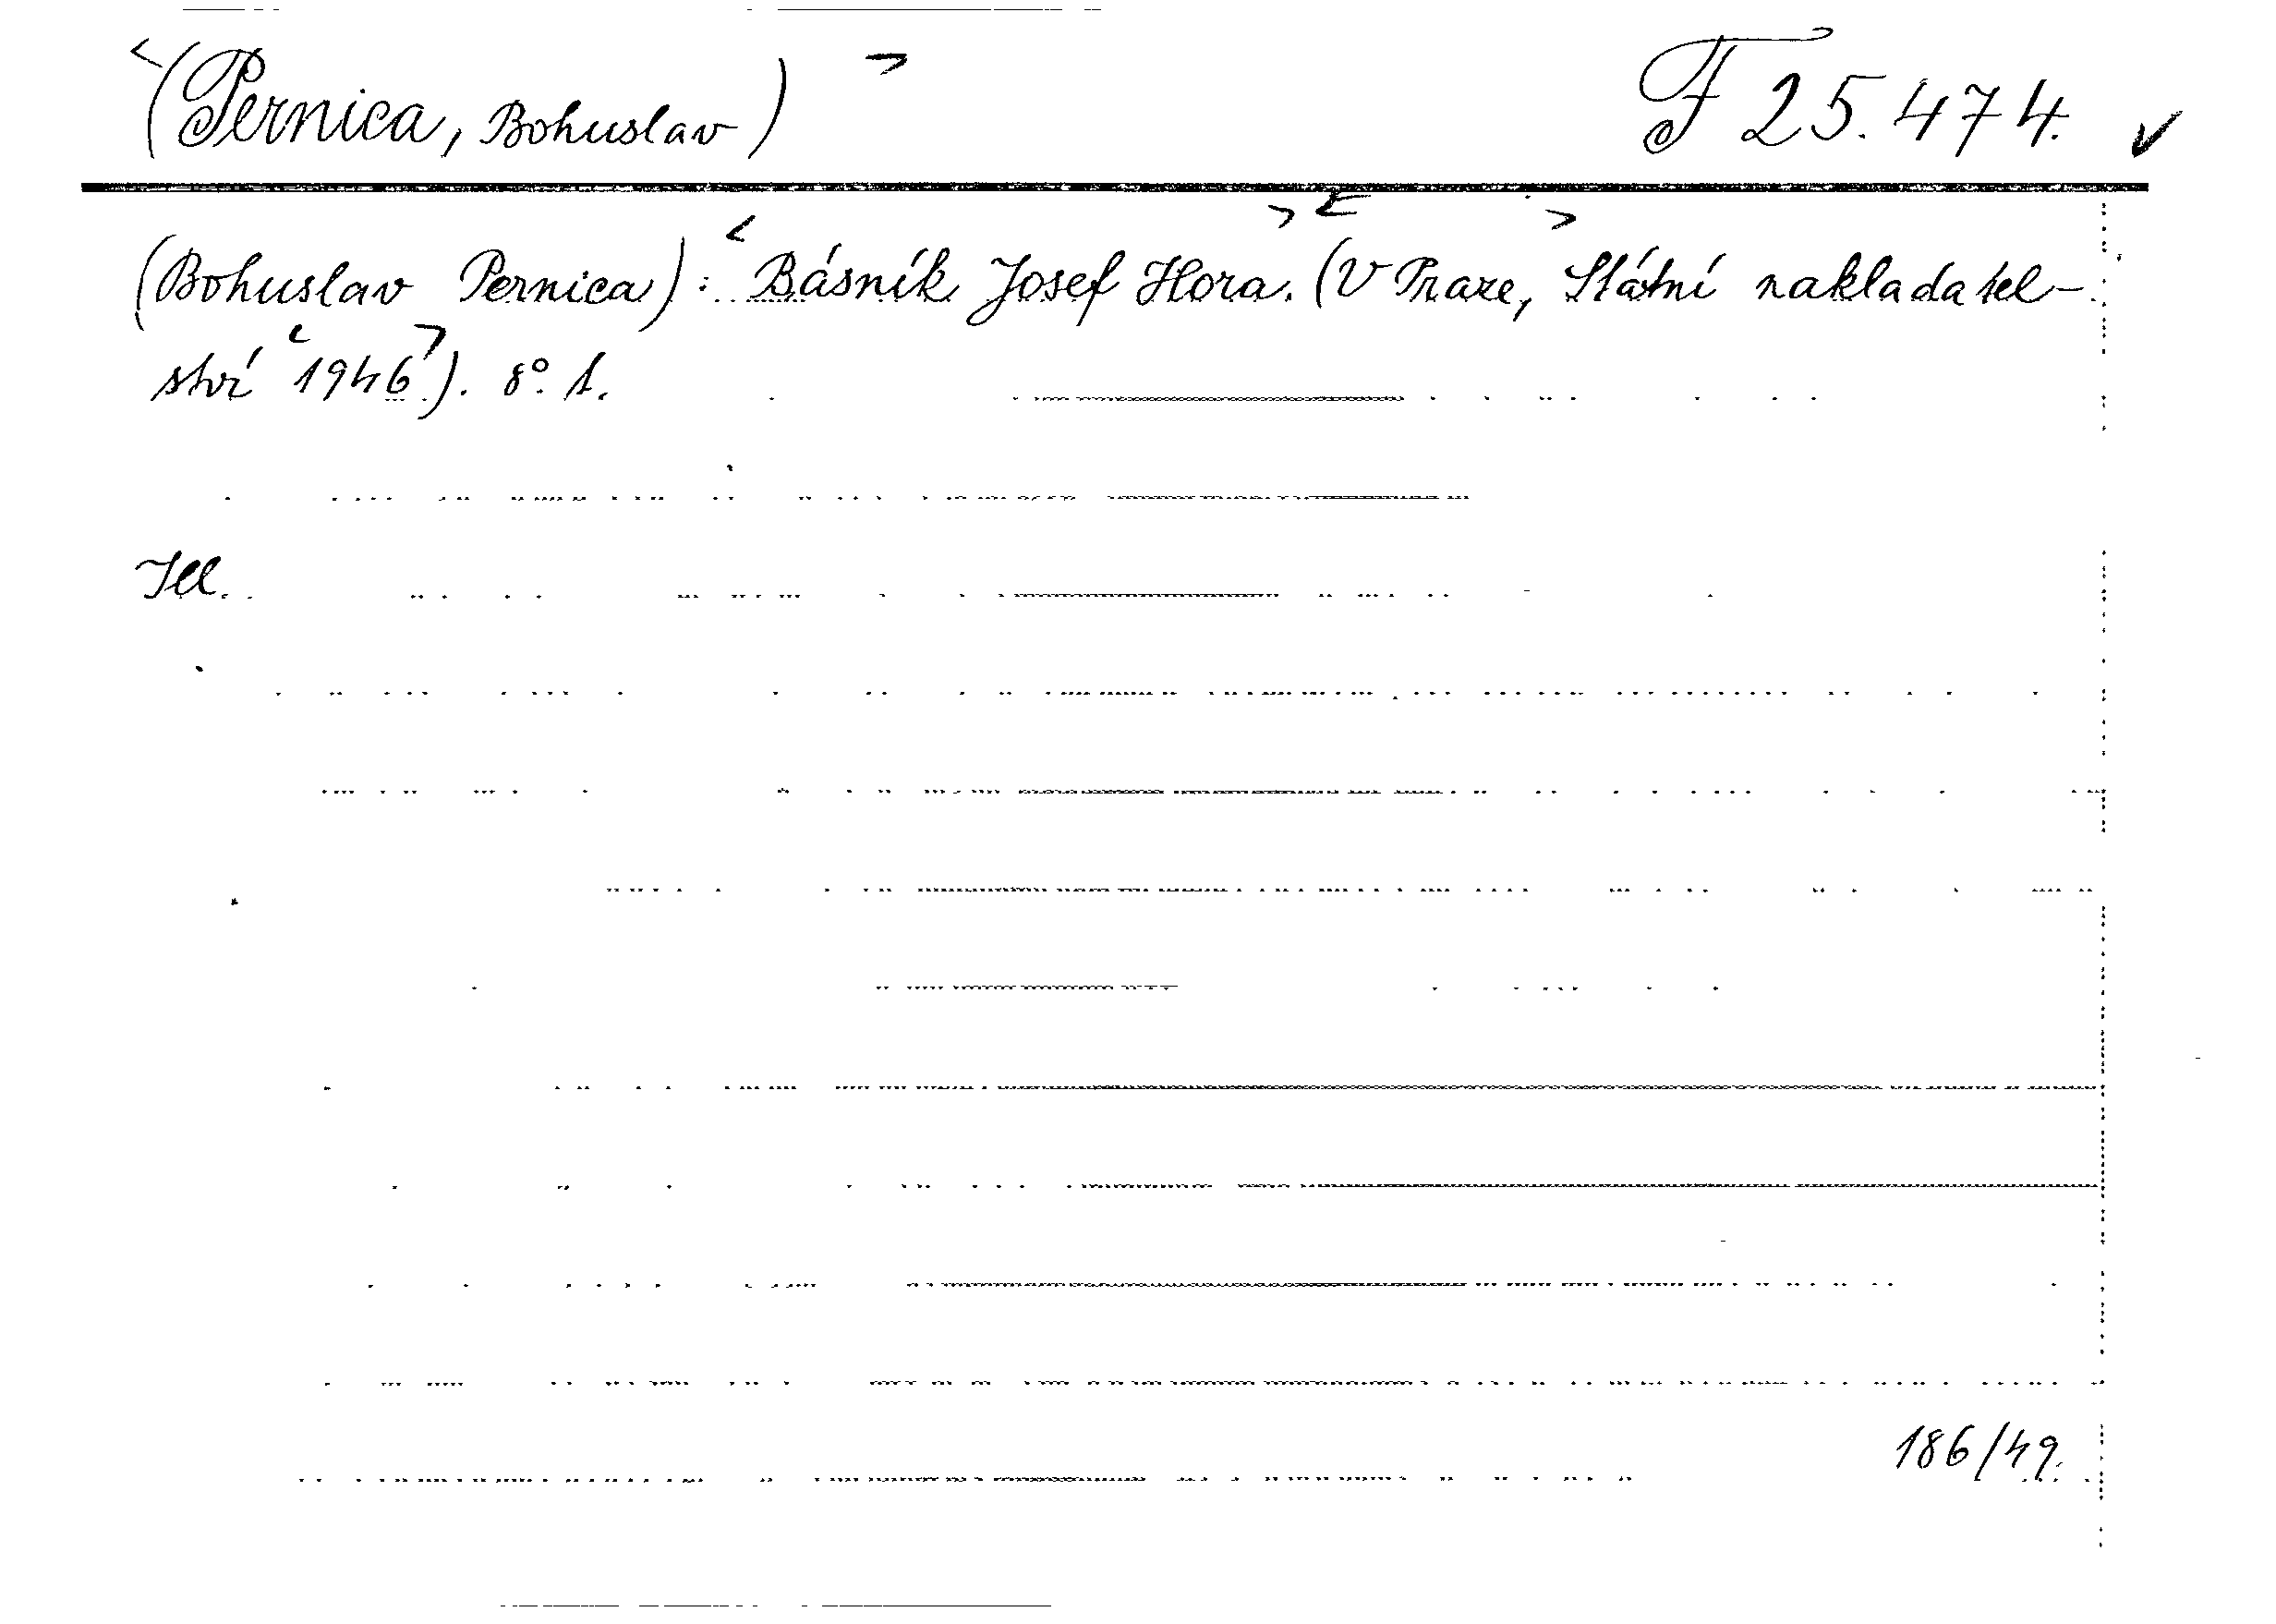 <(Pernica, Bohuslav)> F 25.474. ✓
(Bohuslav Pernica): <Básník Josef Hora.> (<V Praze,> Státní nakladatel-
ství <1946>). 8°. 1.
Ill.
186/49.